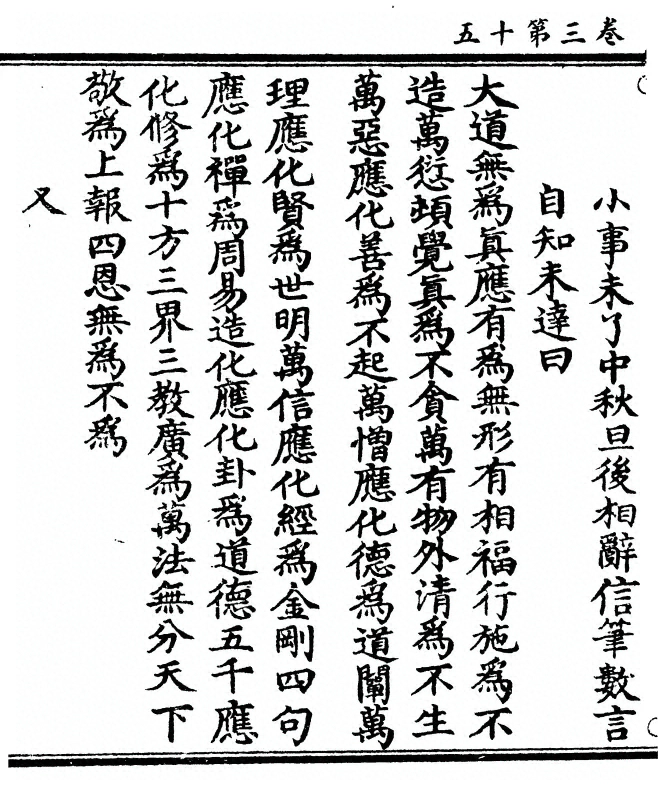 卷三第十五
小事未了中秋旦後相辭信筆數言
自知未達曰
大道無爲真應有爲無形有相福行施爲不
造萬愆頓覺真爲不貪萬有物外清爲不生
萬惡應化善爲不起萬憎應化德爲道闡萬
理應化賢爲世明萬信應化經爲金剛四句
應化禪爲周易造化應化卦爲道德五千應
化修爲十方三界三教廣爲萬法無分天下
敬爲上報四恩無爲不爲
又